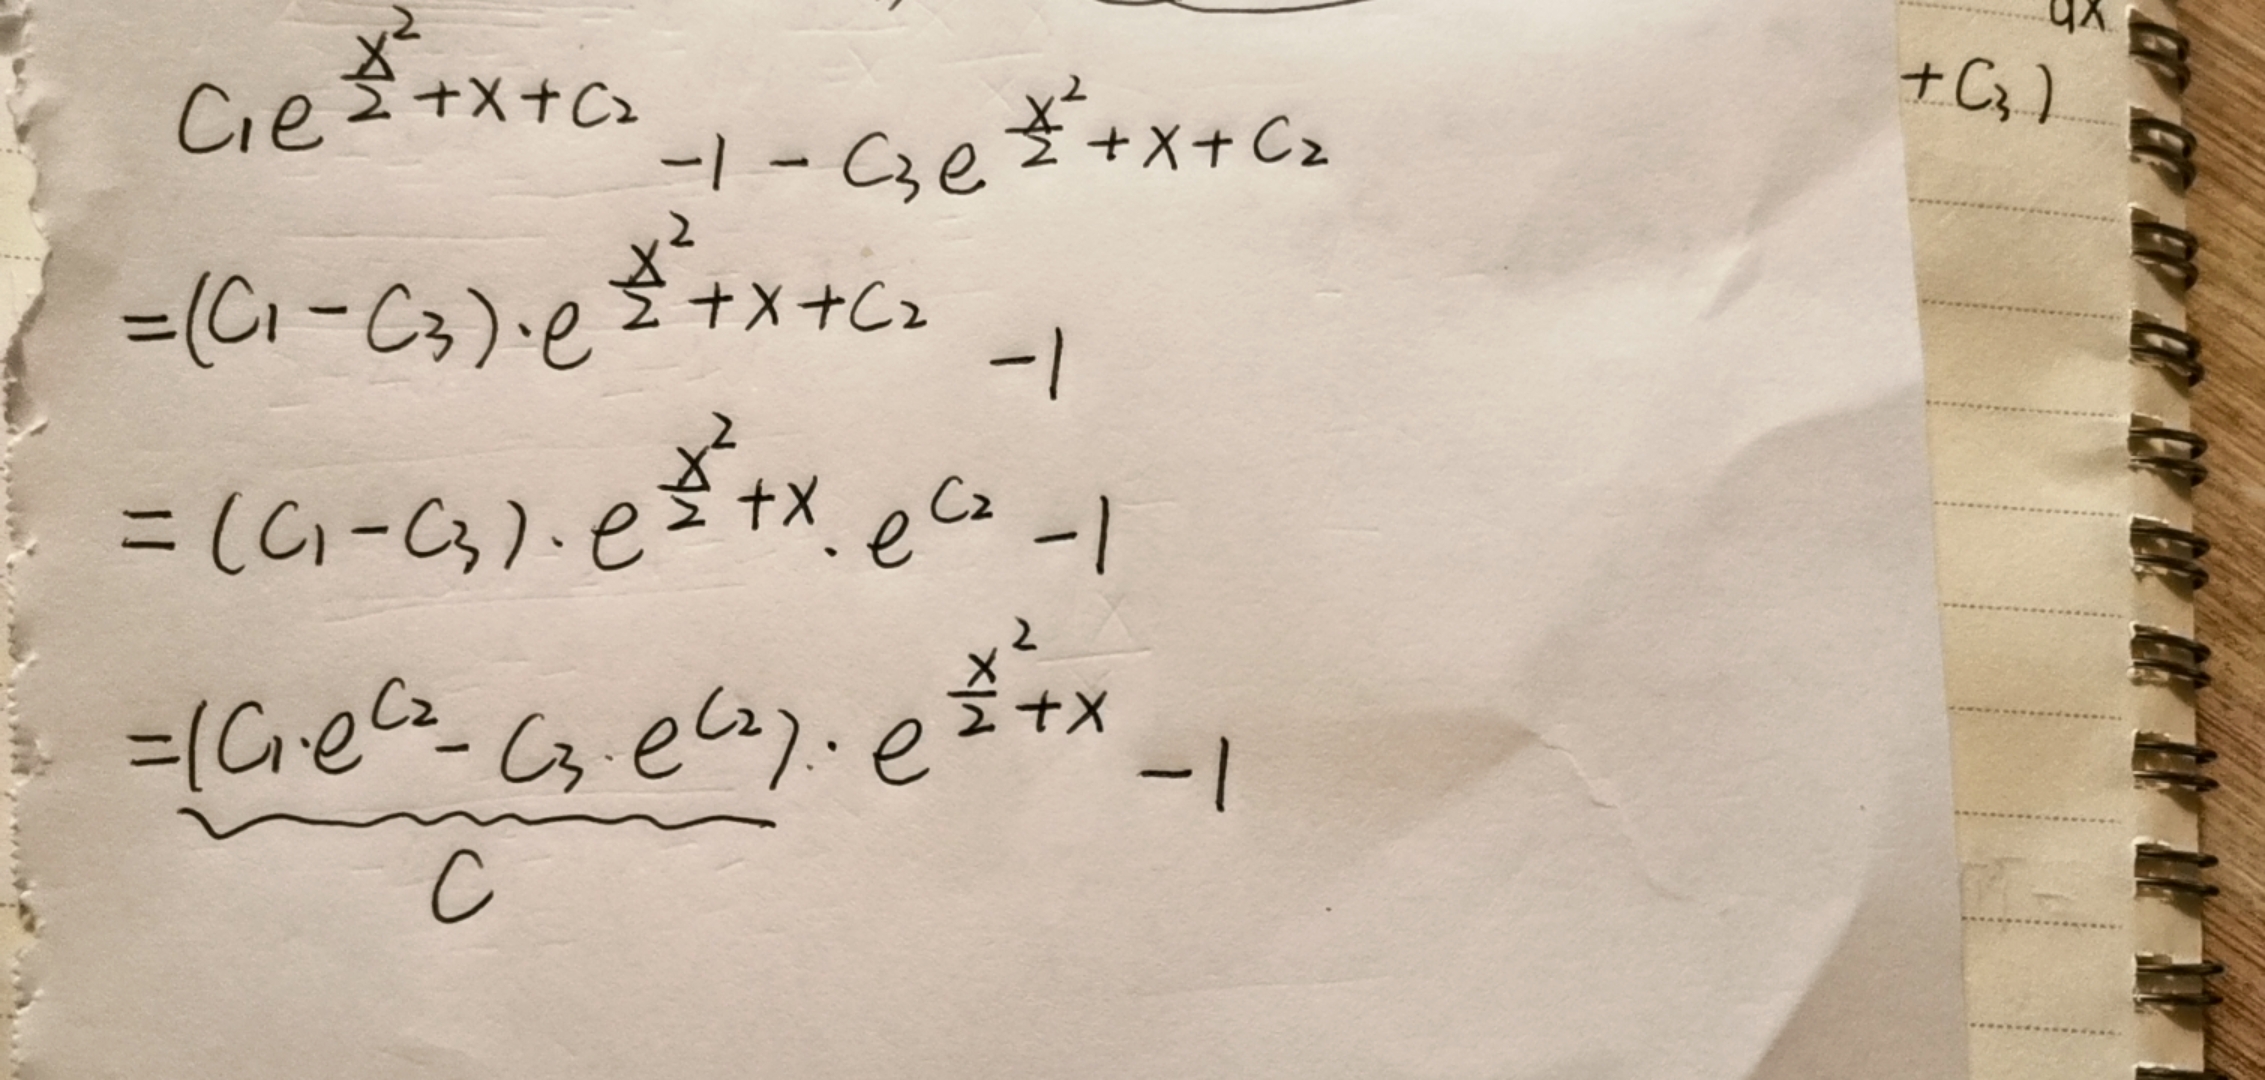 dx
+C₃)
C₁e^{\frac{x^2}{2}+x+C₂} -1 - C₃e^{\frac{x^2}{2}+x+C₂}
=(C₁-C₃)·e^{\frac{x^2}{2}+x+C₂} -1
=(C₁-C₃)·e^{\frac{x^2}{2}+x}·e^{C₂} -1
=(C₁·e^{C₂}-C₃·e^{C₂})·e^{\frac{x^2}{2}+x} -1
C